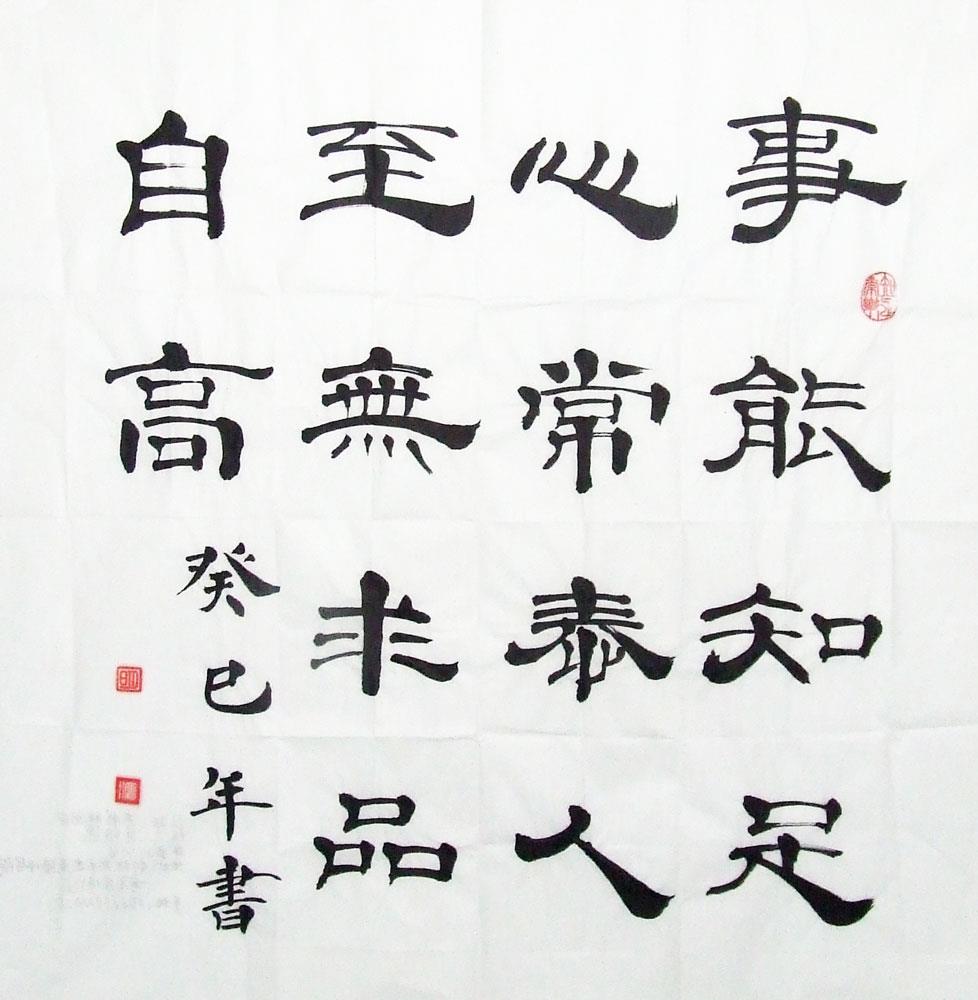 事能知足
心常泰人
至無求品
自高
癸巳年書